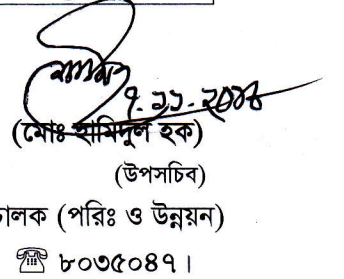 ৭.১১.২০১৮
(মোঃ হামিদুল হক)
(উপসচিব)
চালক (পরিঃ ও উন্নয়ন)
☏ ৮০৩৫০৪৭।